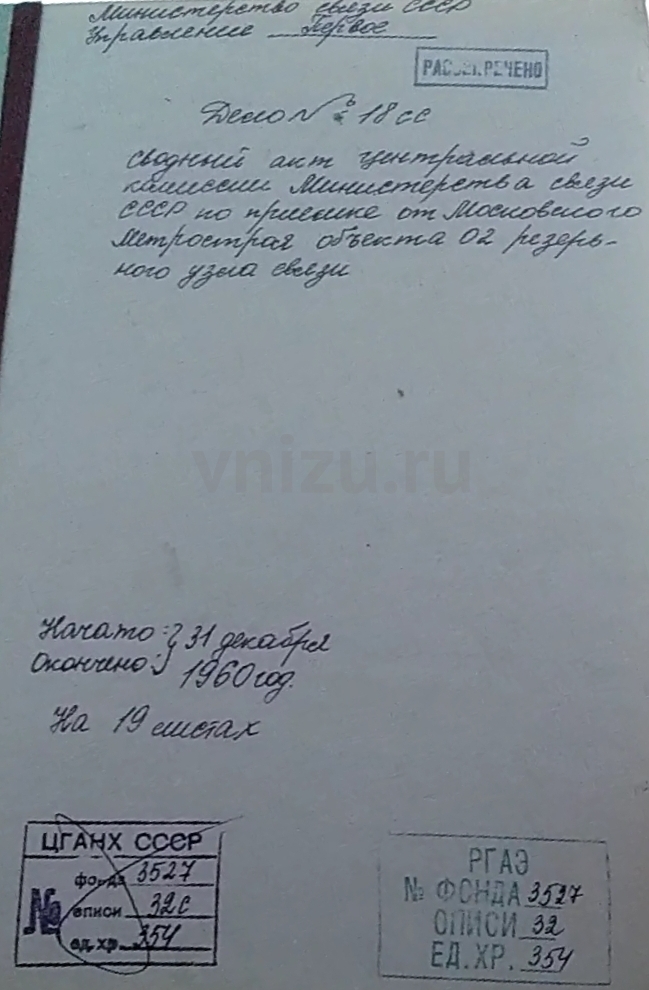 Министерство связи СССР
Управление Первое
РАССЕКРЕЧЕНО
Дело № 18сс
Сводный акт Центральной
комиссии Министерства связи
СССР по приемке от Московского
Метростроя объекта 02 резерв-
ного узла связи
vnizu.ru
Начато: } 31 декабря
Окончено: } 1960 год.
На 19 листах
ЦГАНХ СССР
фонда 3527
№ описи 32с
ед. хр. 354
РГАЭ
№ ФОНДА 3527
ОПИСИ 32
ЕД. ХР. 354